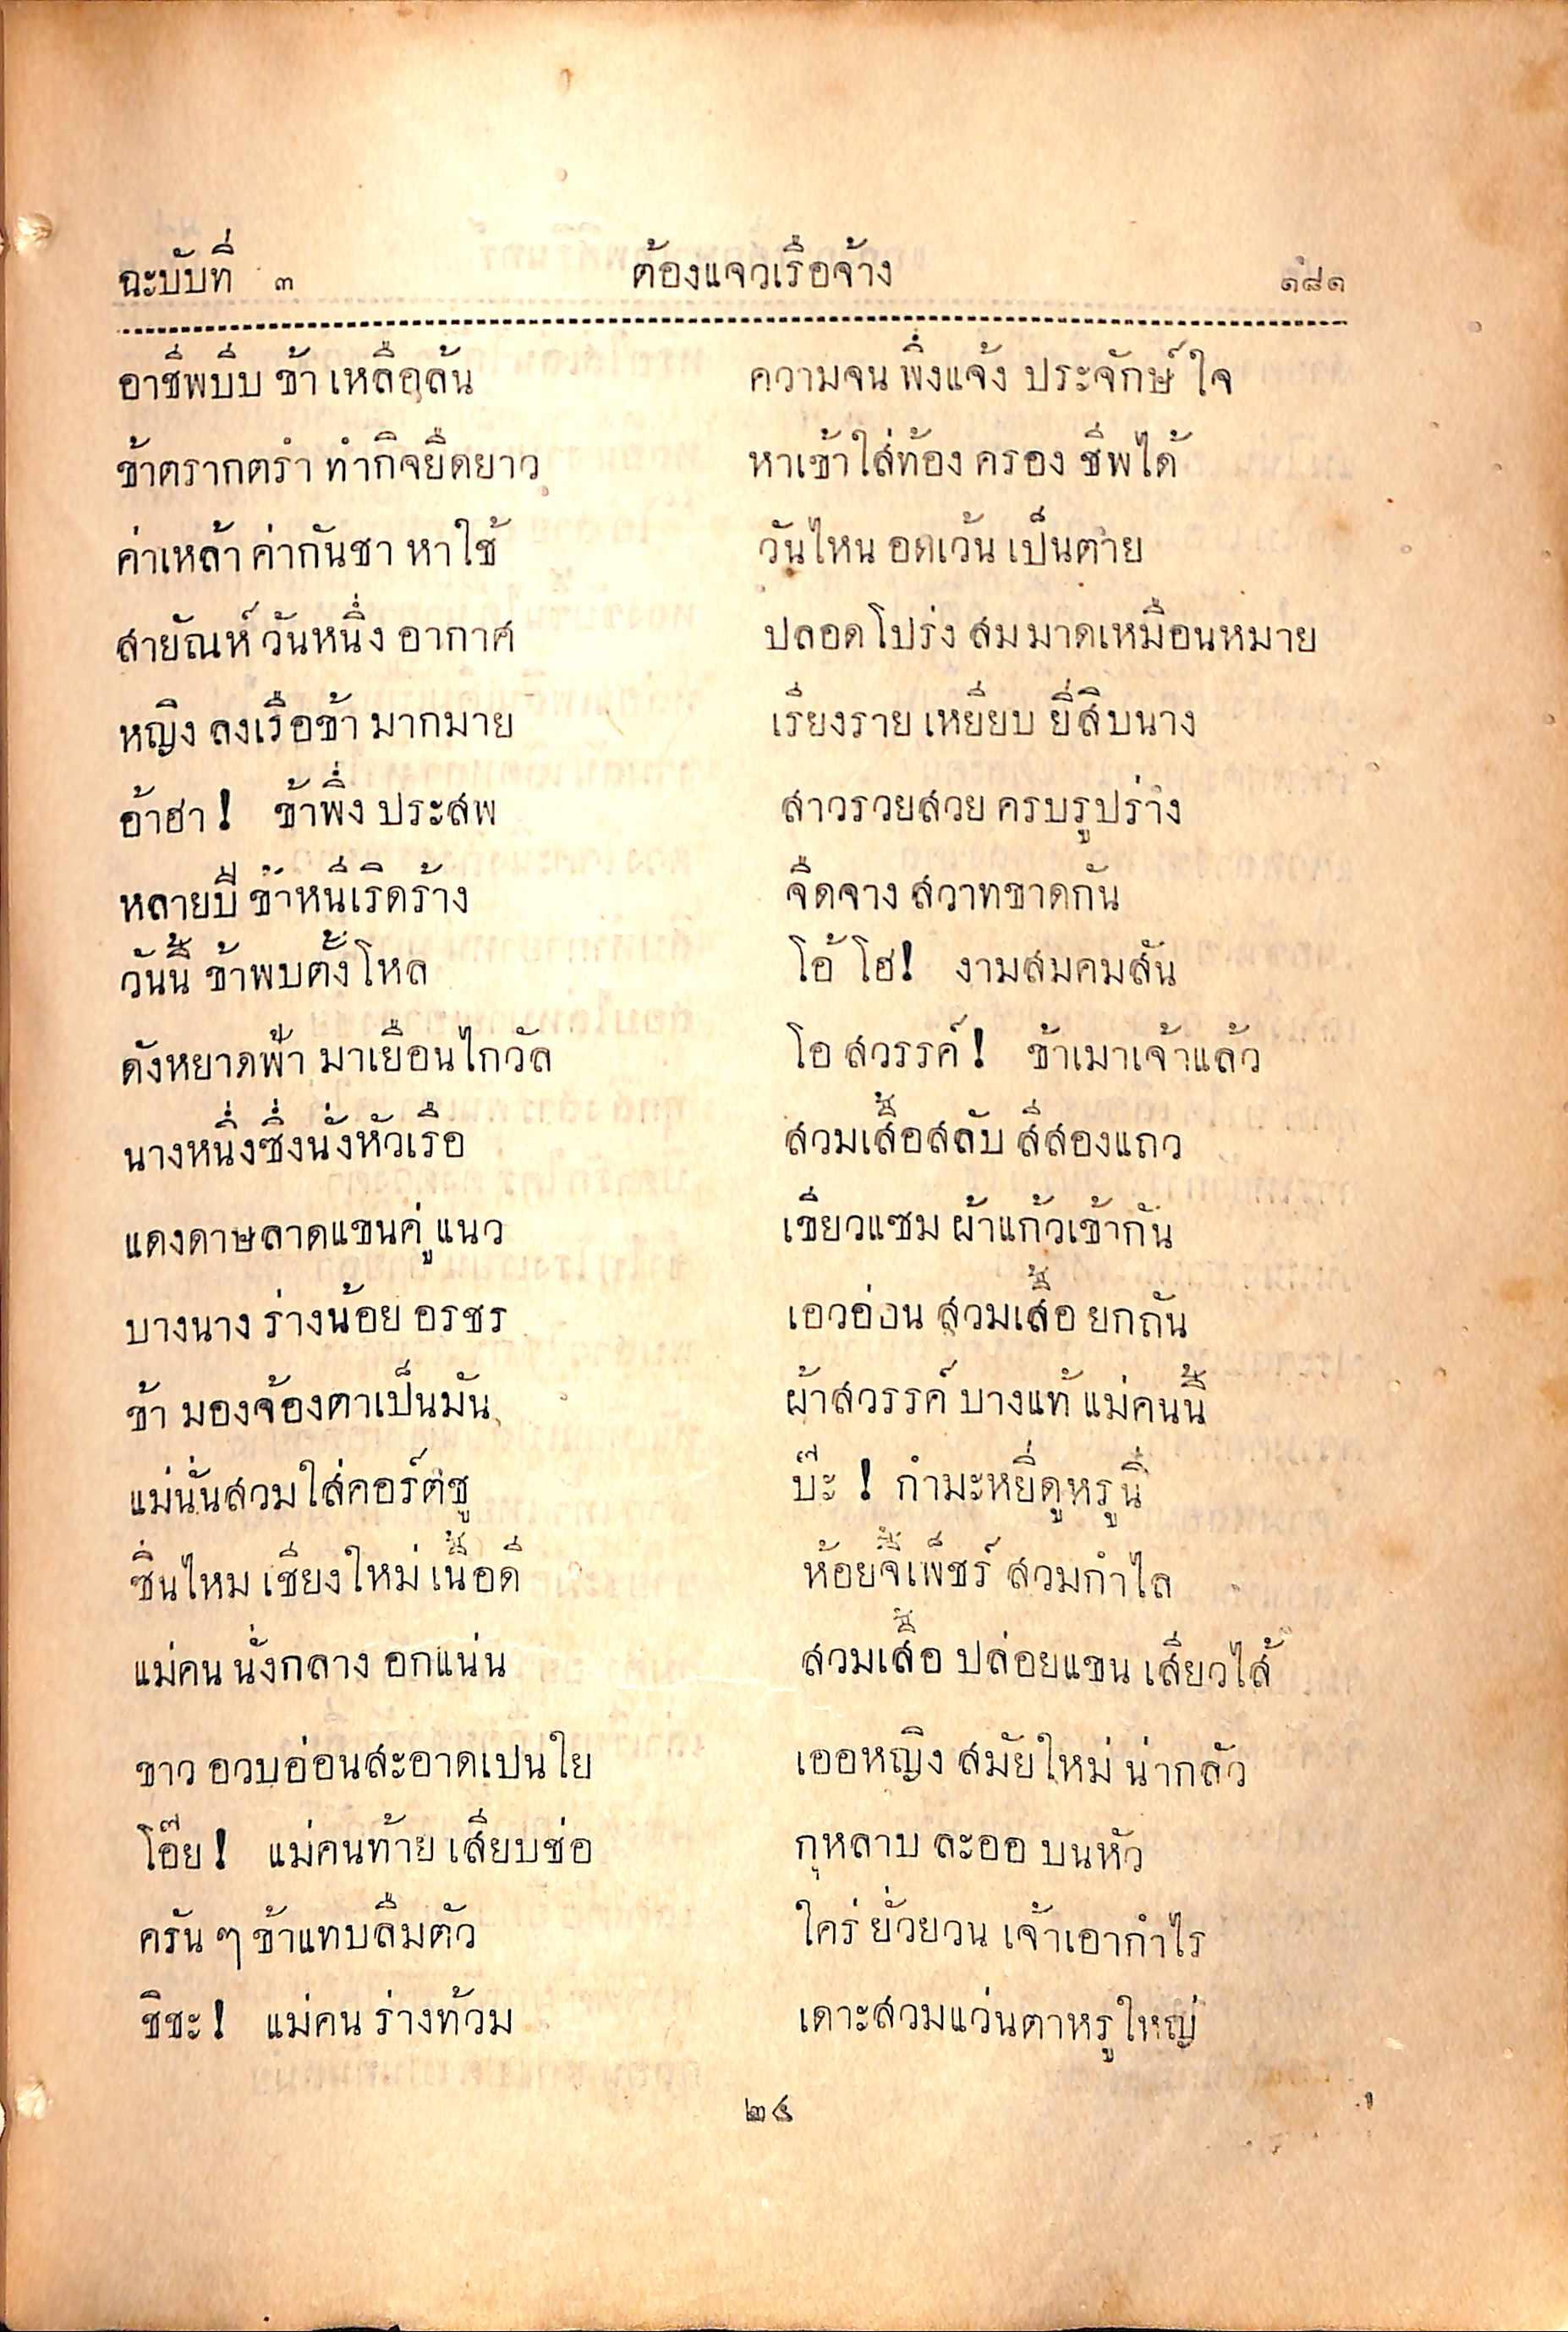 ฉะบับที่ ๓ ต้องแจวเรือจ้าง ๑๘๑
อาชีพบีบ ข้า เหลือล้น ความจน พึ่งแจ้ง ประจักษ์ ใจ
ข้าตรากตรำ ทำกิจยืดยาว หาเข้าใส่ท้อง ครอง ชีพได้
ค่าเหล้า ค่ากันชา หาใช้ วันไหน อดเว้น เป็นตาย
สายัณห์ วันหนึ่ง อากาศ ปลอดโปร่ง สมมาดเหมือนหมาย
หญิง ลงเรือข้า มากมาย เรียงราย เหยียบ ยี่สิบนาง
อ้าฮา! ข้าพึ่ง ประสพ สาวรวยสวย ครบรูปร่าง
หลายปี ข้าหนีเริดร้าง จืดจาง สวาทขาดกัน
วันนี้ ข้าพบตั้งโหล โอ้ โฮ! งามสมคมสัน
ดังหยาดฟ้า มาเยือนไกวัล โอ สวรรค์! ข้าเมาเจ้าแล้ว
นางหนึ่งซึ่งนั่งหัวเรือ สวมเสื้อสลับ สีสองแถว
แดงดาษลาดแขนคู่แนว เขียวแซม ผ้าแก้วเข้ากัน
บางนาง ร่างน้อย อรชร เอวอ่อน สวมเสื้อ ยกถัน
ข้า มองจ้องตาเป็นมัน ผ้าสวรรค์ บางแท้ แม่คนนี้
แม่นั่นสวมใส่คอร์ตชู บ๊ะ! กำมะหยี่ดูหรูนี่
ซิ่นไหม เชียงใหม่ เนื้อดี ห้อยจี้เพ็ชร์ สวมกำไล
แม่คน นั่งกลาง อกแน่น สวมเสื้อ ปล่อยแขน เสียวไส้
ขาว อวบอ่อนสะอาดเปนใย เออหญิง สมัยใหม่ น่ากลัว
โอ๊ย! แม่คนท้าย เสียบช่อ กุหลาบ ละออ บนหัว
ครัน ๆ ข้าแทบลืมตัว ใคร่ ยั่วยวน เจ้าเอากำไร
ชิชะ! แม่คน ร่างท้วม เดาะสวมแว่นตาหรูใหญ่
๒๔